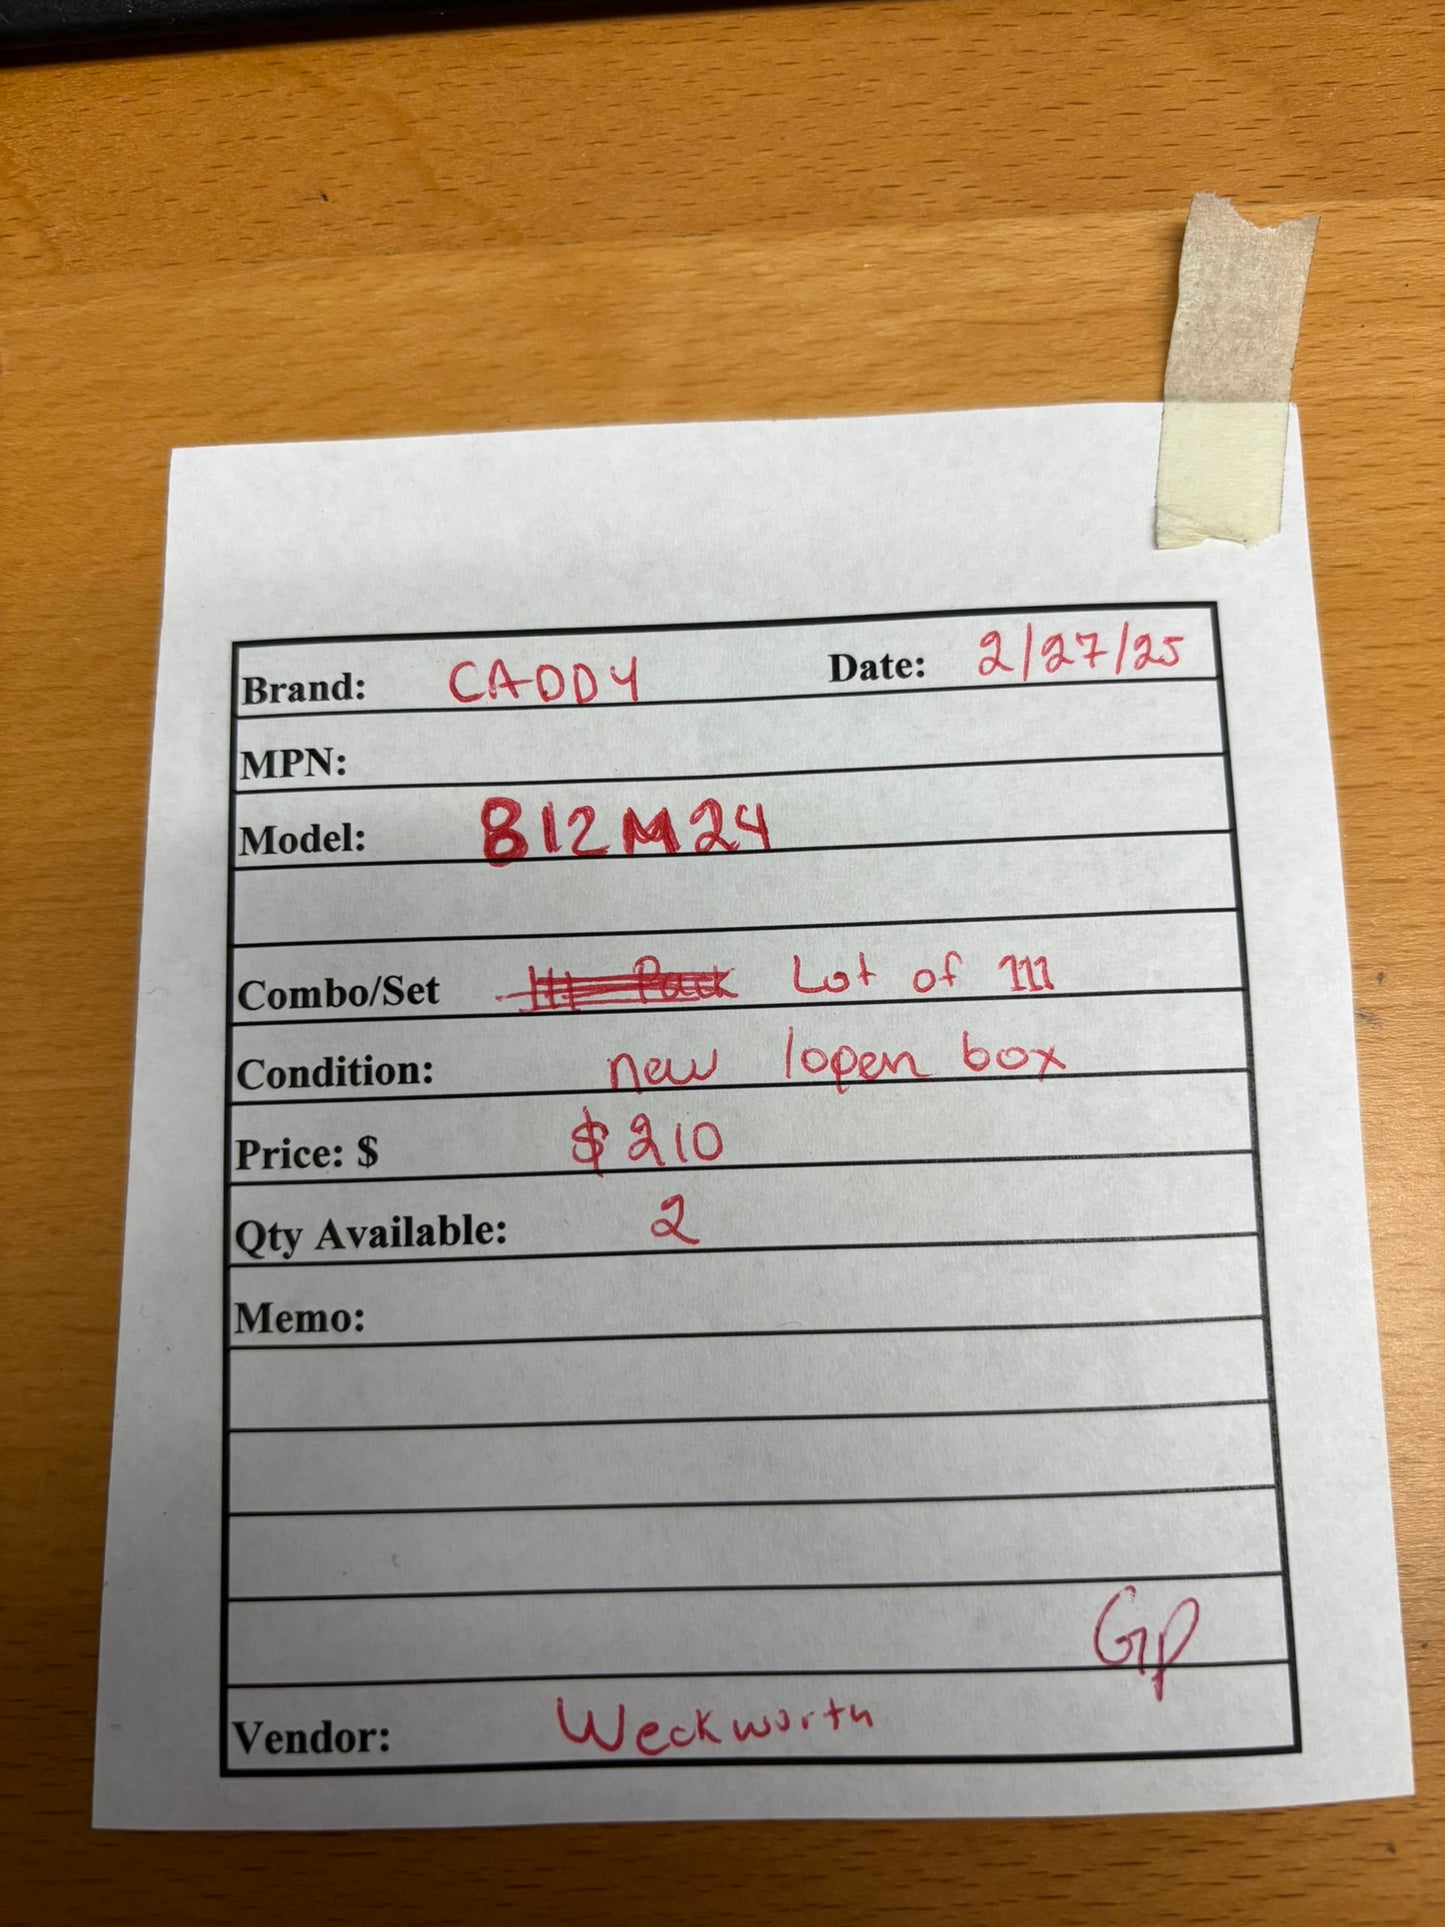 Brand: CADDY Date: 2/27/25
MPN:
Model: B12M24
Combo/Set 111 Pack Lot of 111
Condition: new /open box
Price: $ $210
Qty Available: 2
Memo:
GP
Vendor: Weckworth